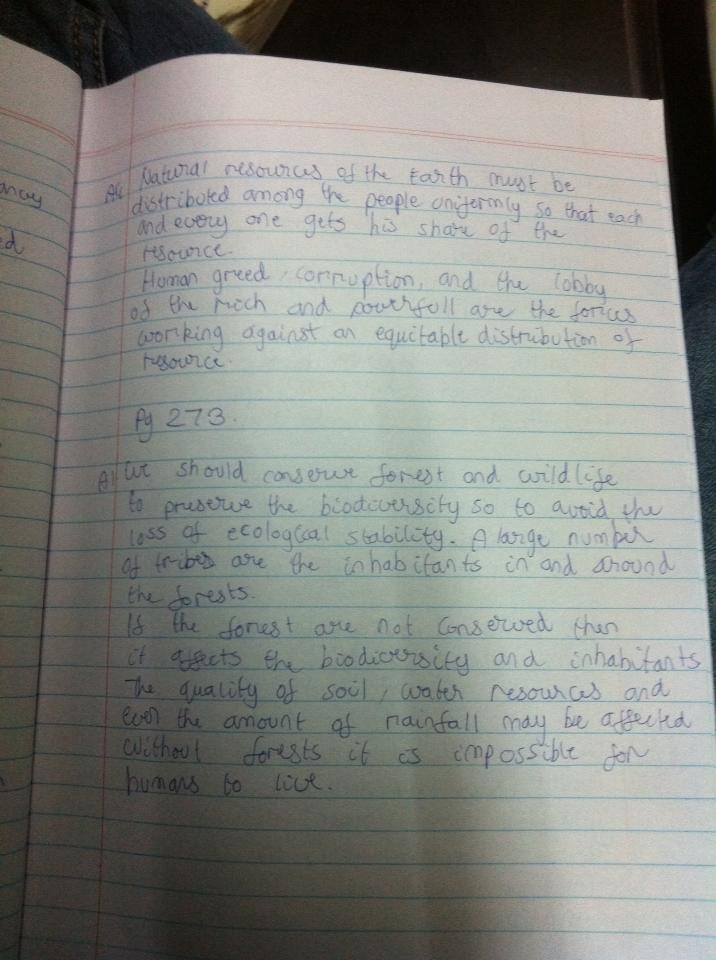 ancy
ed
A4 Natural resources of the Earth must be
distributed among the people uniformly so that each
and every one gets his share of the
resource.
Human greed, corruption, and the lobby
of the rich and powerfull are the forces
working against an equitable distribution of
resource.
Pg 273.
A1 We should conserve forest and wildlife
to preserve the biodiversity so to avoid the
loss of ecological stability. A large number
of tribes are the inhabitants in and around
the forests.
If the forest are not conserved then
it affects the biodiversity and inhabitants
The quality of soil, water resources and
even the amount of rainfall may be affected
Without forests it is impossible for
humans to live.